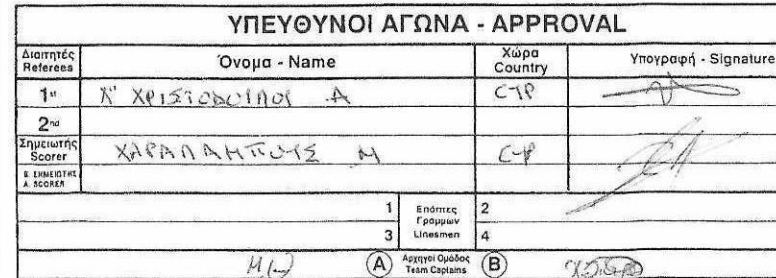 ΥΠΕΥΘΥΝΟΙ ΑΓΩΝΑ - APPROVAL
Διαιτητές Referees Όνομα - Name Χώρα Country Υπογραφή - Signature
1st Χ" ΧΡΙΣΤΟΔΟΥΛΟΥ Α CYP
2nd
Σημειωτής Scorer ΧΑΡΑΛΑΜΠΟΥΣ Μ CYP
Β. ΣΗΜΕΙΩΤΗΣ A. SCORER
1 Επόπτες Γραμμών Linesmen 2
3 4
Α Αρχηγοί Ομάδος Team Captains Β